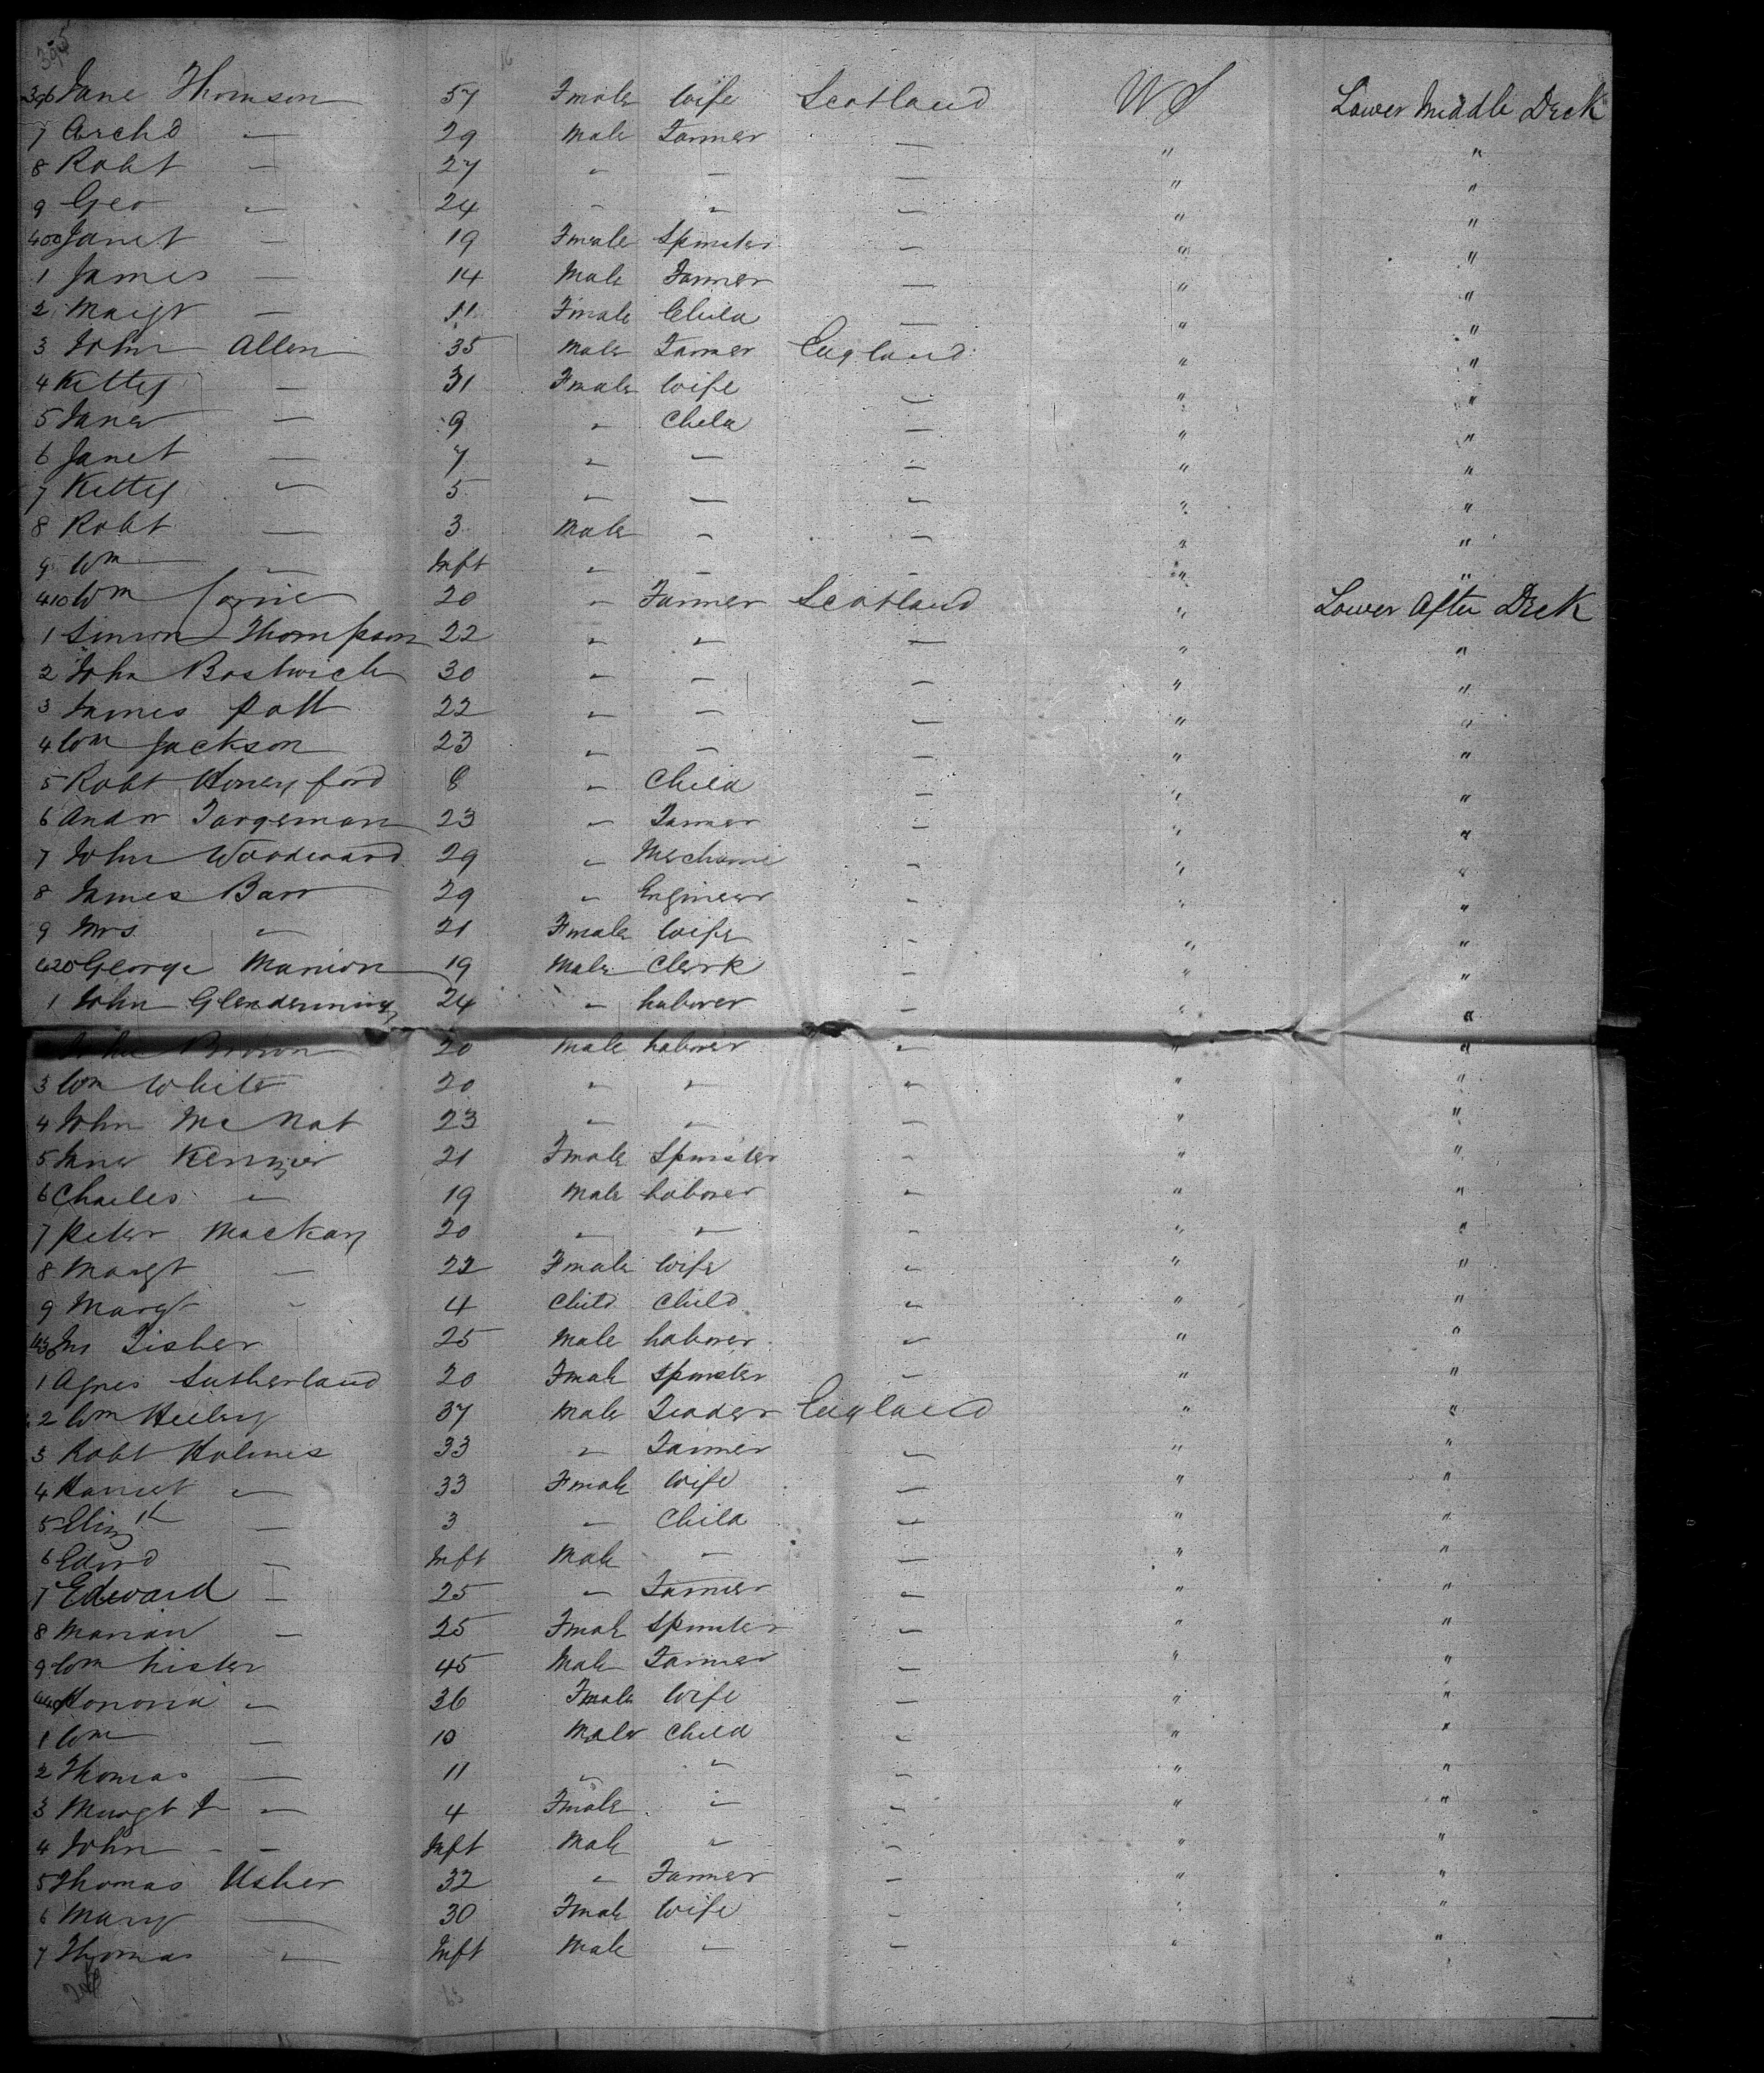 396 Jane Thomson 57 Fmale Wife Scotland U S Lower Middle Deck
7 Archd — 29 Male Farmer — " "
8 Robt — 27 " — — " "
9 Geo — 24 " " — " "
400 Janet — 19 Fmale Spinster — " "
1 James — 14 Male Farmer — " "
2 Margt — 11 Fmale Child — " "
3 John Allen 35 Male Farmer England " "
4 Kitty — 31 Fmale Wife — " "
5 Jane — 9 " Child — " "
6 Janet — 7 " — — " "
7 Kitty — 5 " — — " "
8 Robt — 3 Male — — " "
9 Wm — Inft " — — " "
410 Wm 20 " Farmer Scotland " Lower After Deck
1 Simon Thompson 22 " " — " "
2 John Bostwick 30 " — — " "
3 James Pott 22 " — — " "
4 Wm Jackson 23 " — — " "
5 Robt Honeyford 8 " Child — " "
6 Andw Targeman 23 " Farmer — " "
7 John Woodward 29 " Mechanic — " "
8 James Barr 29 " Engineer — " "
9 Mrs " 21 Fmale Wife — " "
420 George Manion 19 Male Clerk — " "
1 John Glendenning 24 " Laborer — " "
Brown 20 Male Laborer — " "
3 Wm White 20 " " — " "
4 John McNat 23 " " — " "
5 Jane Kenzie 21 Fmale Spinster — " "
6 Charles " 19 Male Laborer — " "
7 Peter Mackay 20 " " — " "
8 Margt — 22 Fmale Wife — " "
9 Margt " 4 Child Child — " "
430 Fisher 25 Male Laborer — " "
1 Agnes Sutherland 20 Fmale Spinster — " "
2 Wm 37 Male England " "
3 Robt Holmes 33 " Farmer — " "
4 Harriet — 33 Fmale Wife — " "
5 Elizth — 3 " Child — " "
6 Edwd — Inft Male — — " "
7 Edward — 25 " Farmer — " "
8 Marian — 25 Fmale Spinster — " "
9 Wm Lister 45 Male Farmer — " "
440 Honoria — 36 Fmale Wife — " "
1 Wm — 10 Male Child — " "
2 Thomas — 11 " " — " "
3 Margt J — 4 Fmale " — " "
4 John — Inft Male " — " "
5 Thomas Usher 32 " Farmer — " "
6 Mary — 30 Fmale Wife — " "
7 Thomas — Inft Male — — " "